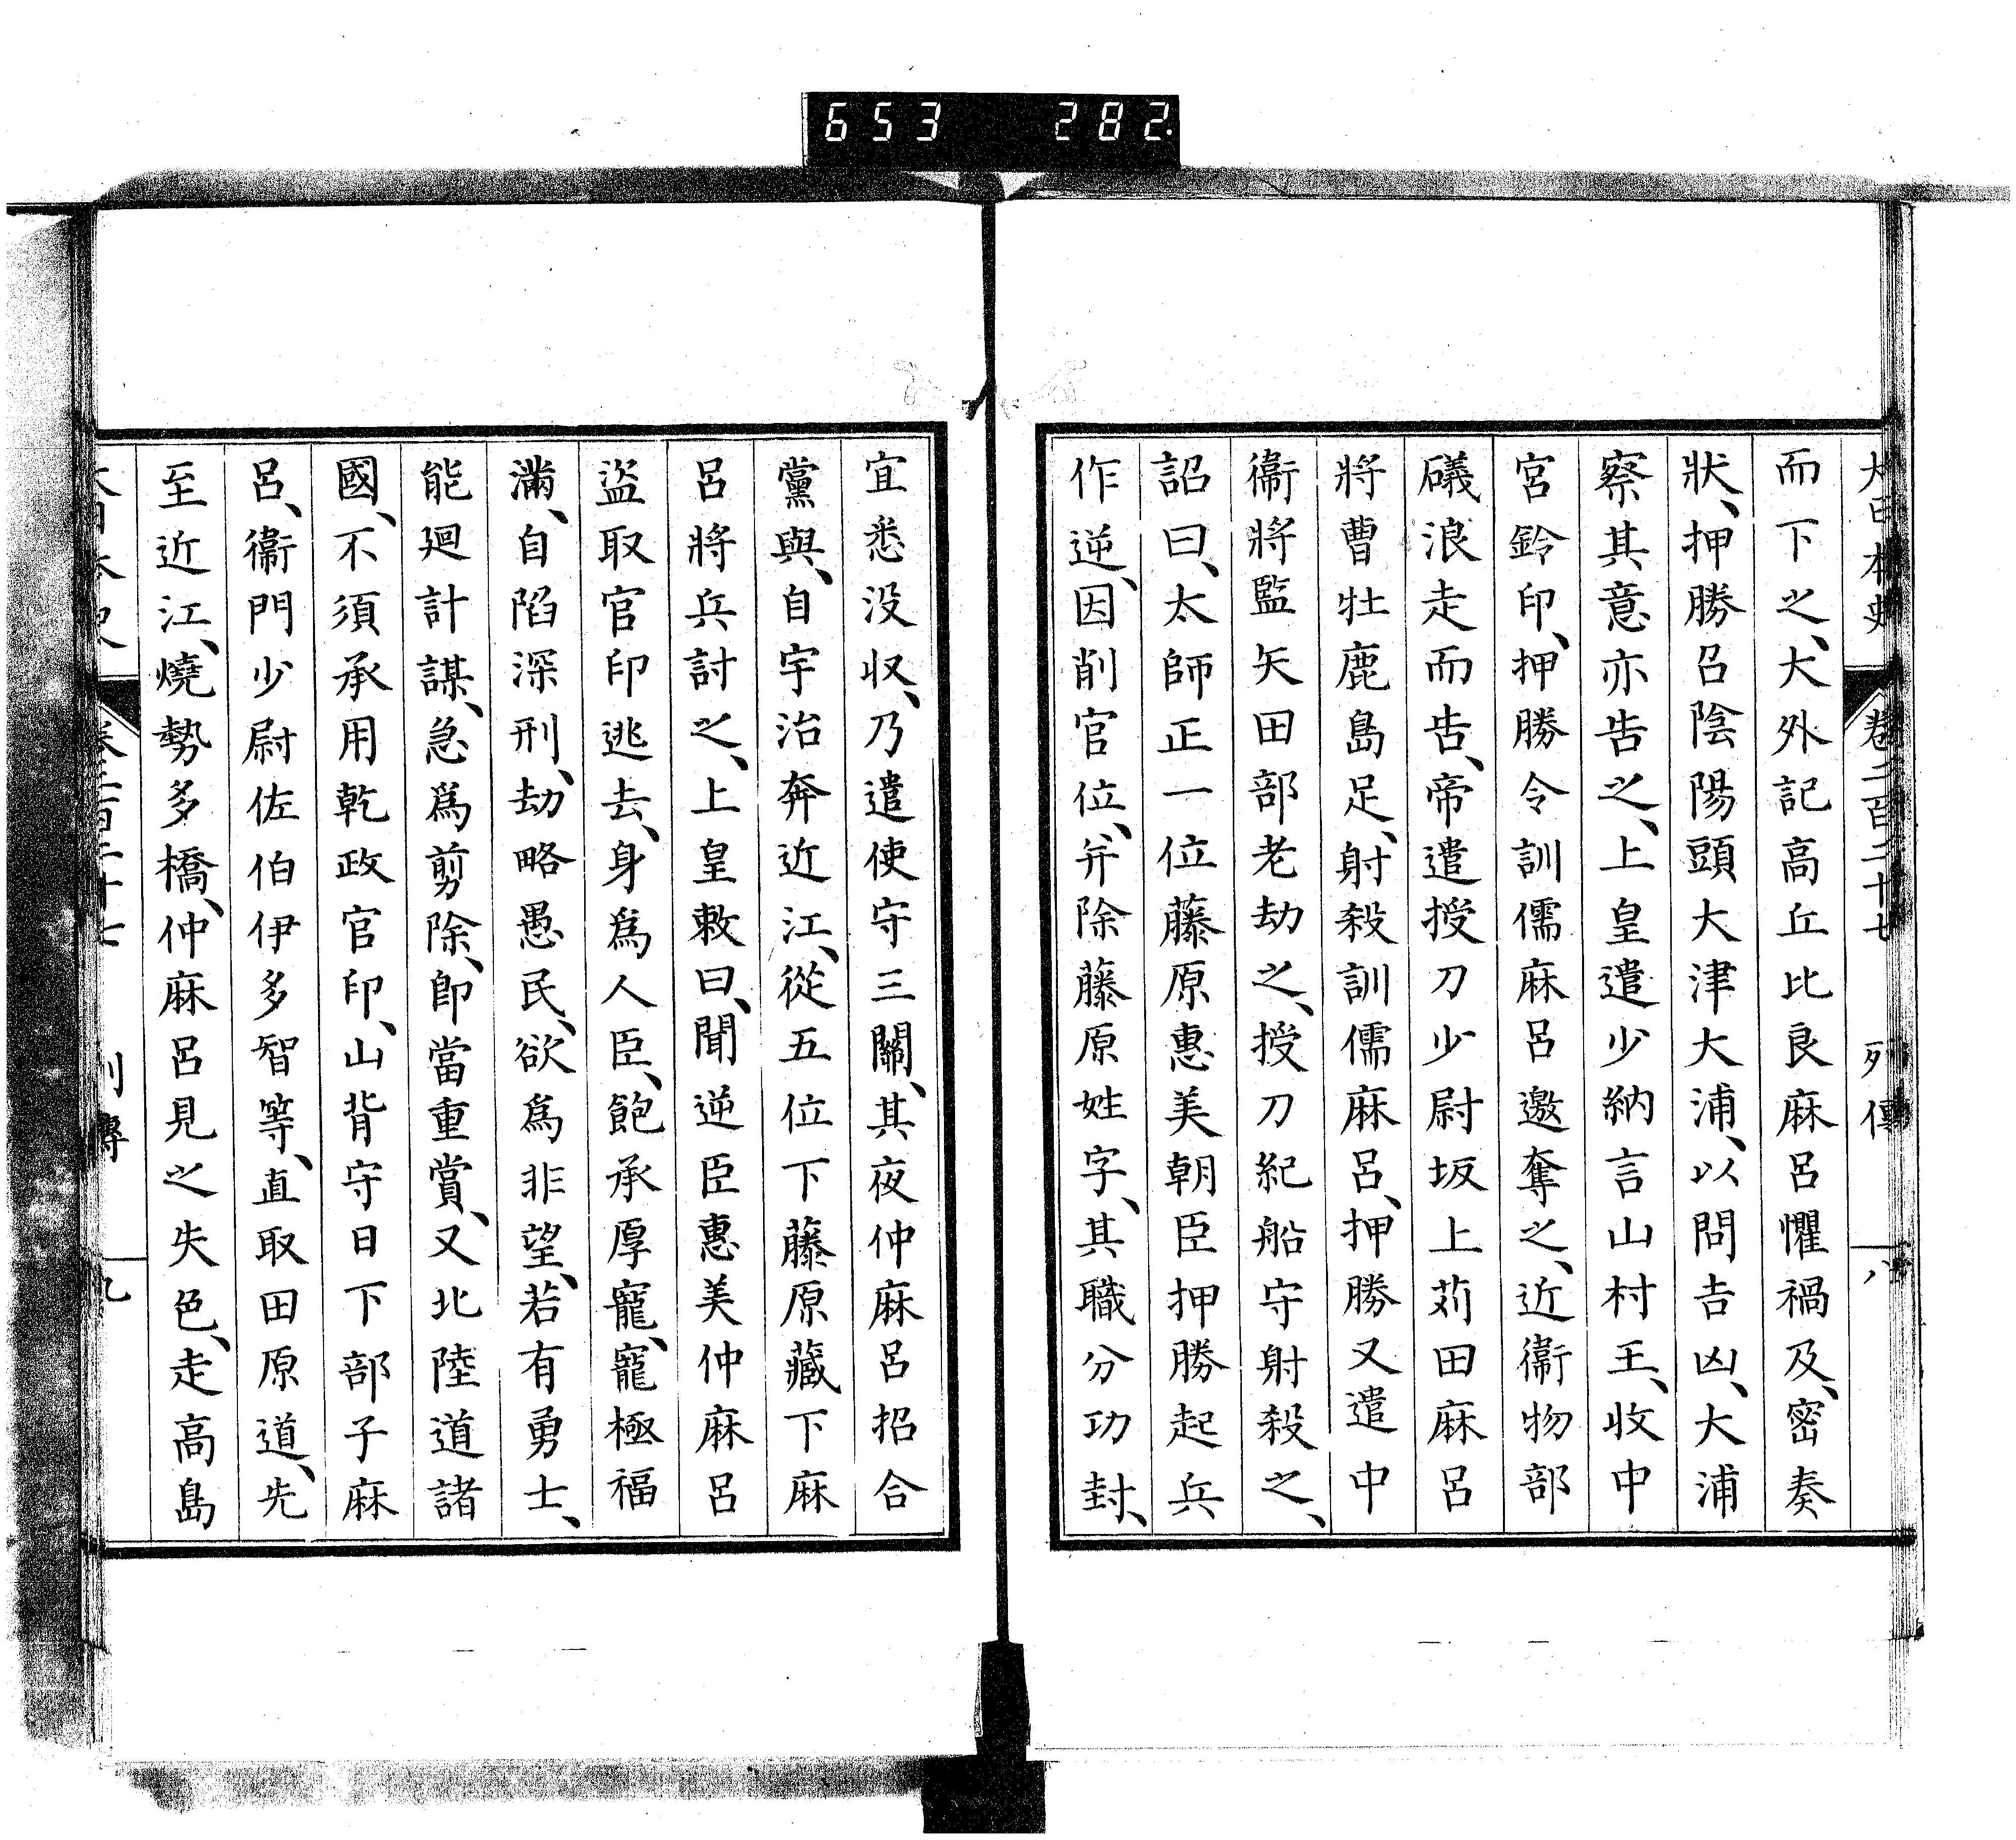 653 282.
大日本史 卷二百二十七 列傳 八
而下之、大外記高丘比良麻呂懼禍及、密奏
狀、押勝召陰陽頭大津大浦、以問吉凶、大浦
察其意亦告之、上皇遣少納言山村王、收中
宮鈴印、押勝令訓儒麻呂邀奪之、近衞物部
礒浪走而告、帝遣授刀少尉坂上苅田麻呂
將曹牡鹿島足、射殺訓儒麻呂、押勝又遣中
衞將監矢田部老劫之、授刀紀船守射殺之、
詔曰、太師正一位藤原惠美朝臣押勝起兵
作逆、因削官位、幷除藤原姓字、其職分功封、
宜悉没収、乃遣使守三關、其夜仲麻呂招合
黨與、自宇治奔近江、從五位下藤原藏下麻
呂將兵討之、上皇敕曰、聞逆臣惠美仲麻呂
盜取官印逃去、身爲人臣、飽承厚寵、寵極福
滿、自陷深刑、劫略愚民、欲爲非望、若有勇士、
能廻計謀、急爲剪除、卽當重賞、又北陸道諸
國、不須承用乾政官印、山背守日下部子麻
呂、衞門少尉佐伯伊多智等、直取田原道、先
至近江、燒勢多橋、仲麻呂見之失色、走高島
大日本史 卷二百二十七 列傳 九